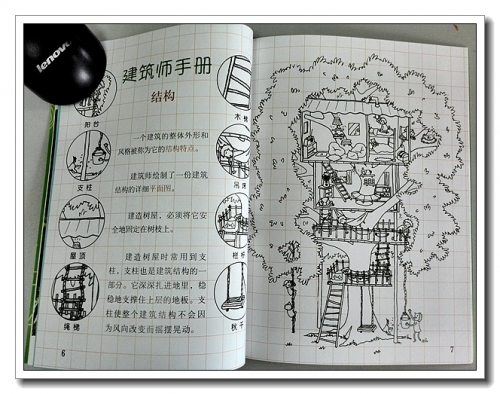 lenovo
建筑师手册
结构
阳台
支柱
屋顶
绳梯
一个建筑的整体外形和
风格被称为它的结构特点。
建筑师绘制了一份建筑
结构的详细平面图。
建造树屋，必须将它安
全地固定在树枝上。
建造树屋时常用到支
柱，支柱也是建筑结构的一
部分。它深深扎进地里，稳
稳地支撑住上层的地板。支
柱使整个建筑结构不会因
为风向改变而摇摆晃动。
木梯
吊床
栏杆
秋千
6
7